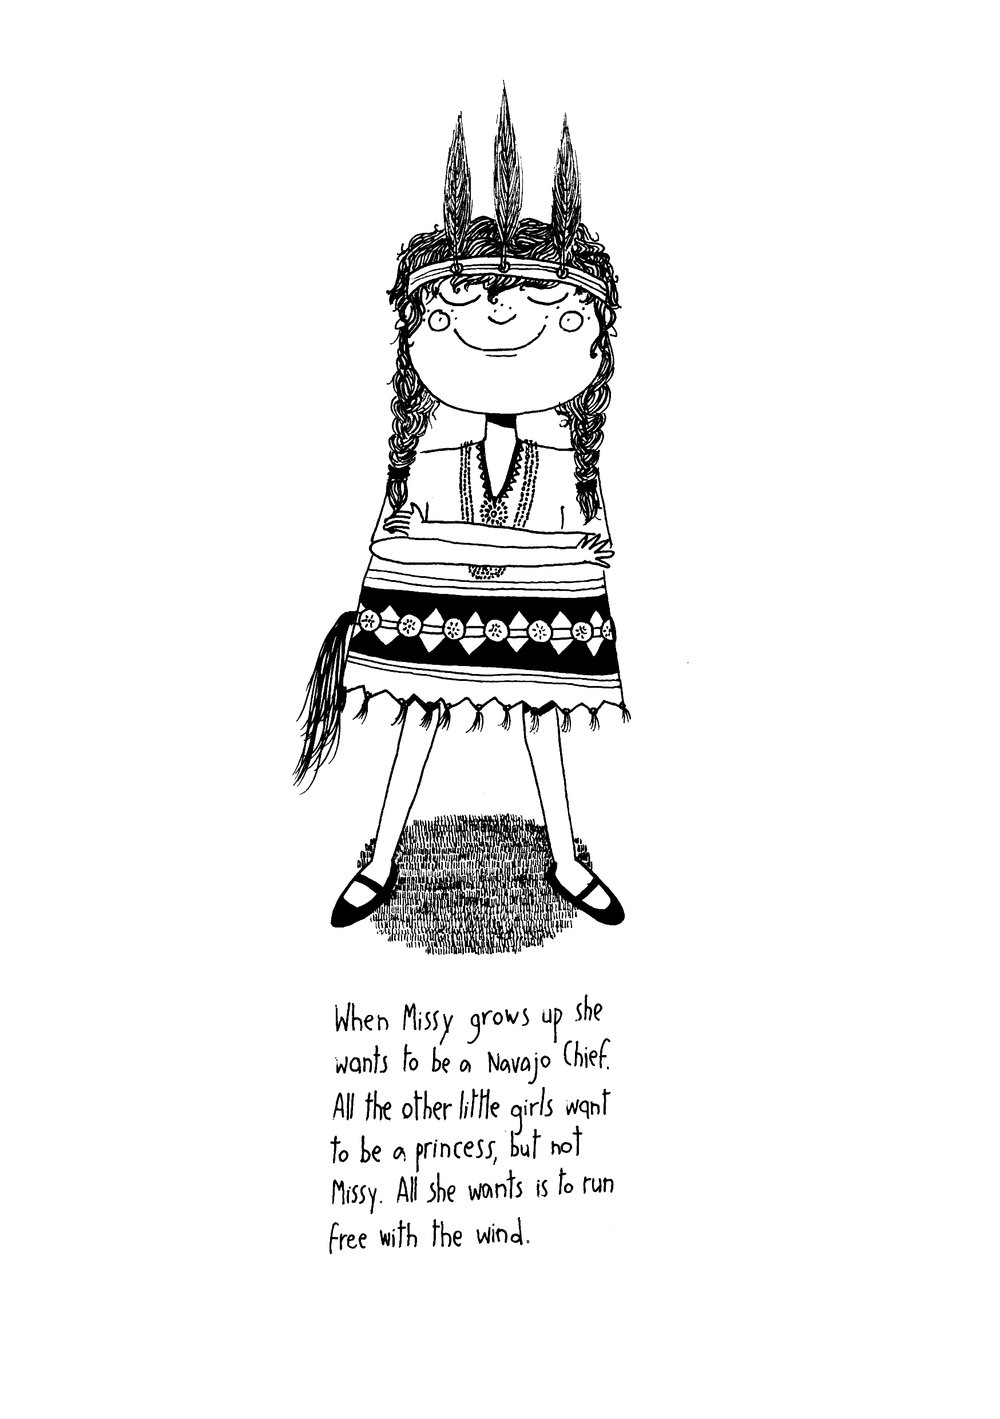 When Missy grows up she
wants to be a Navajo Chief.
All the other little girls want
to be a princess, but not
Missy. All she wants is to run
free with the wind.